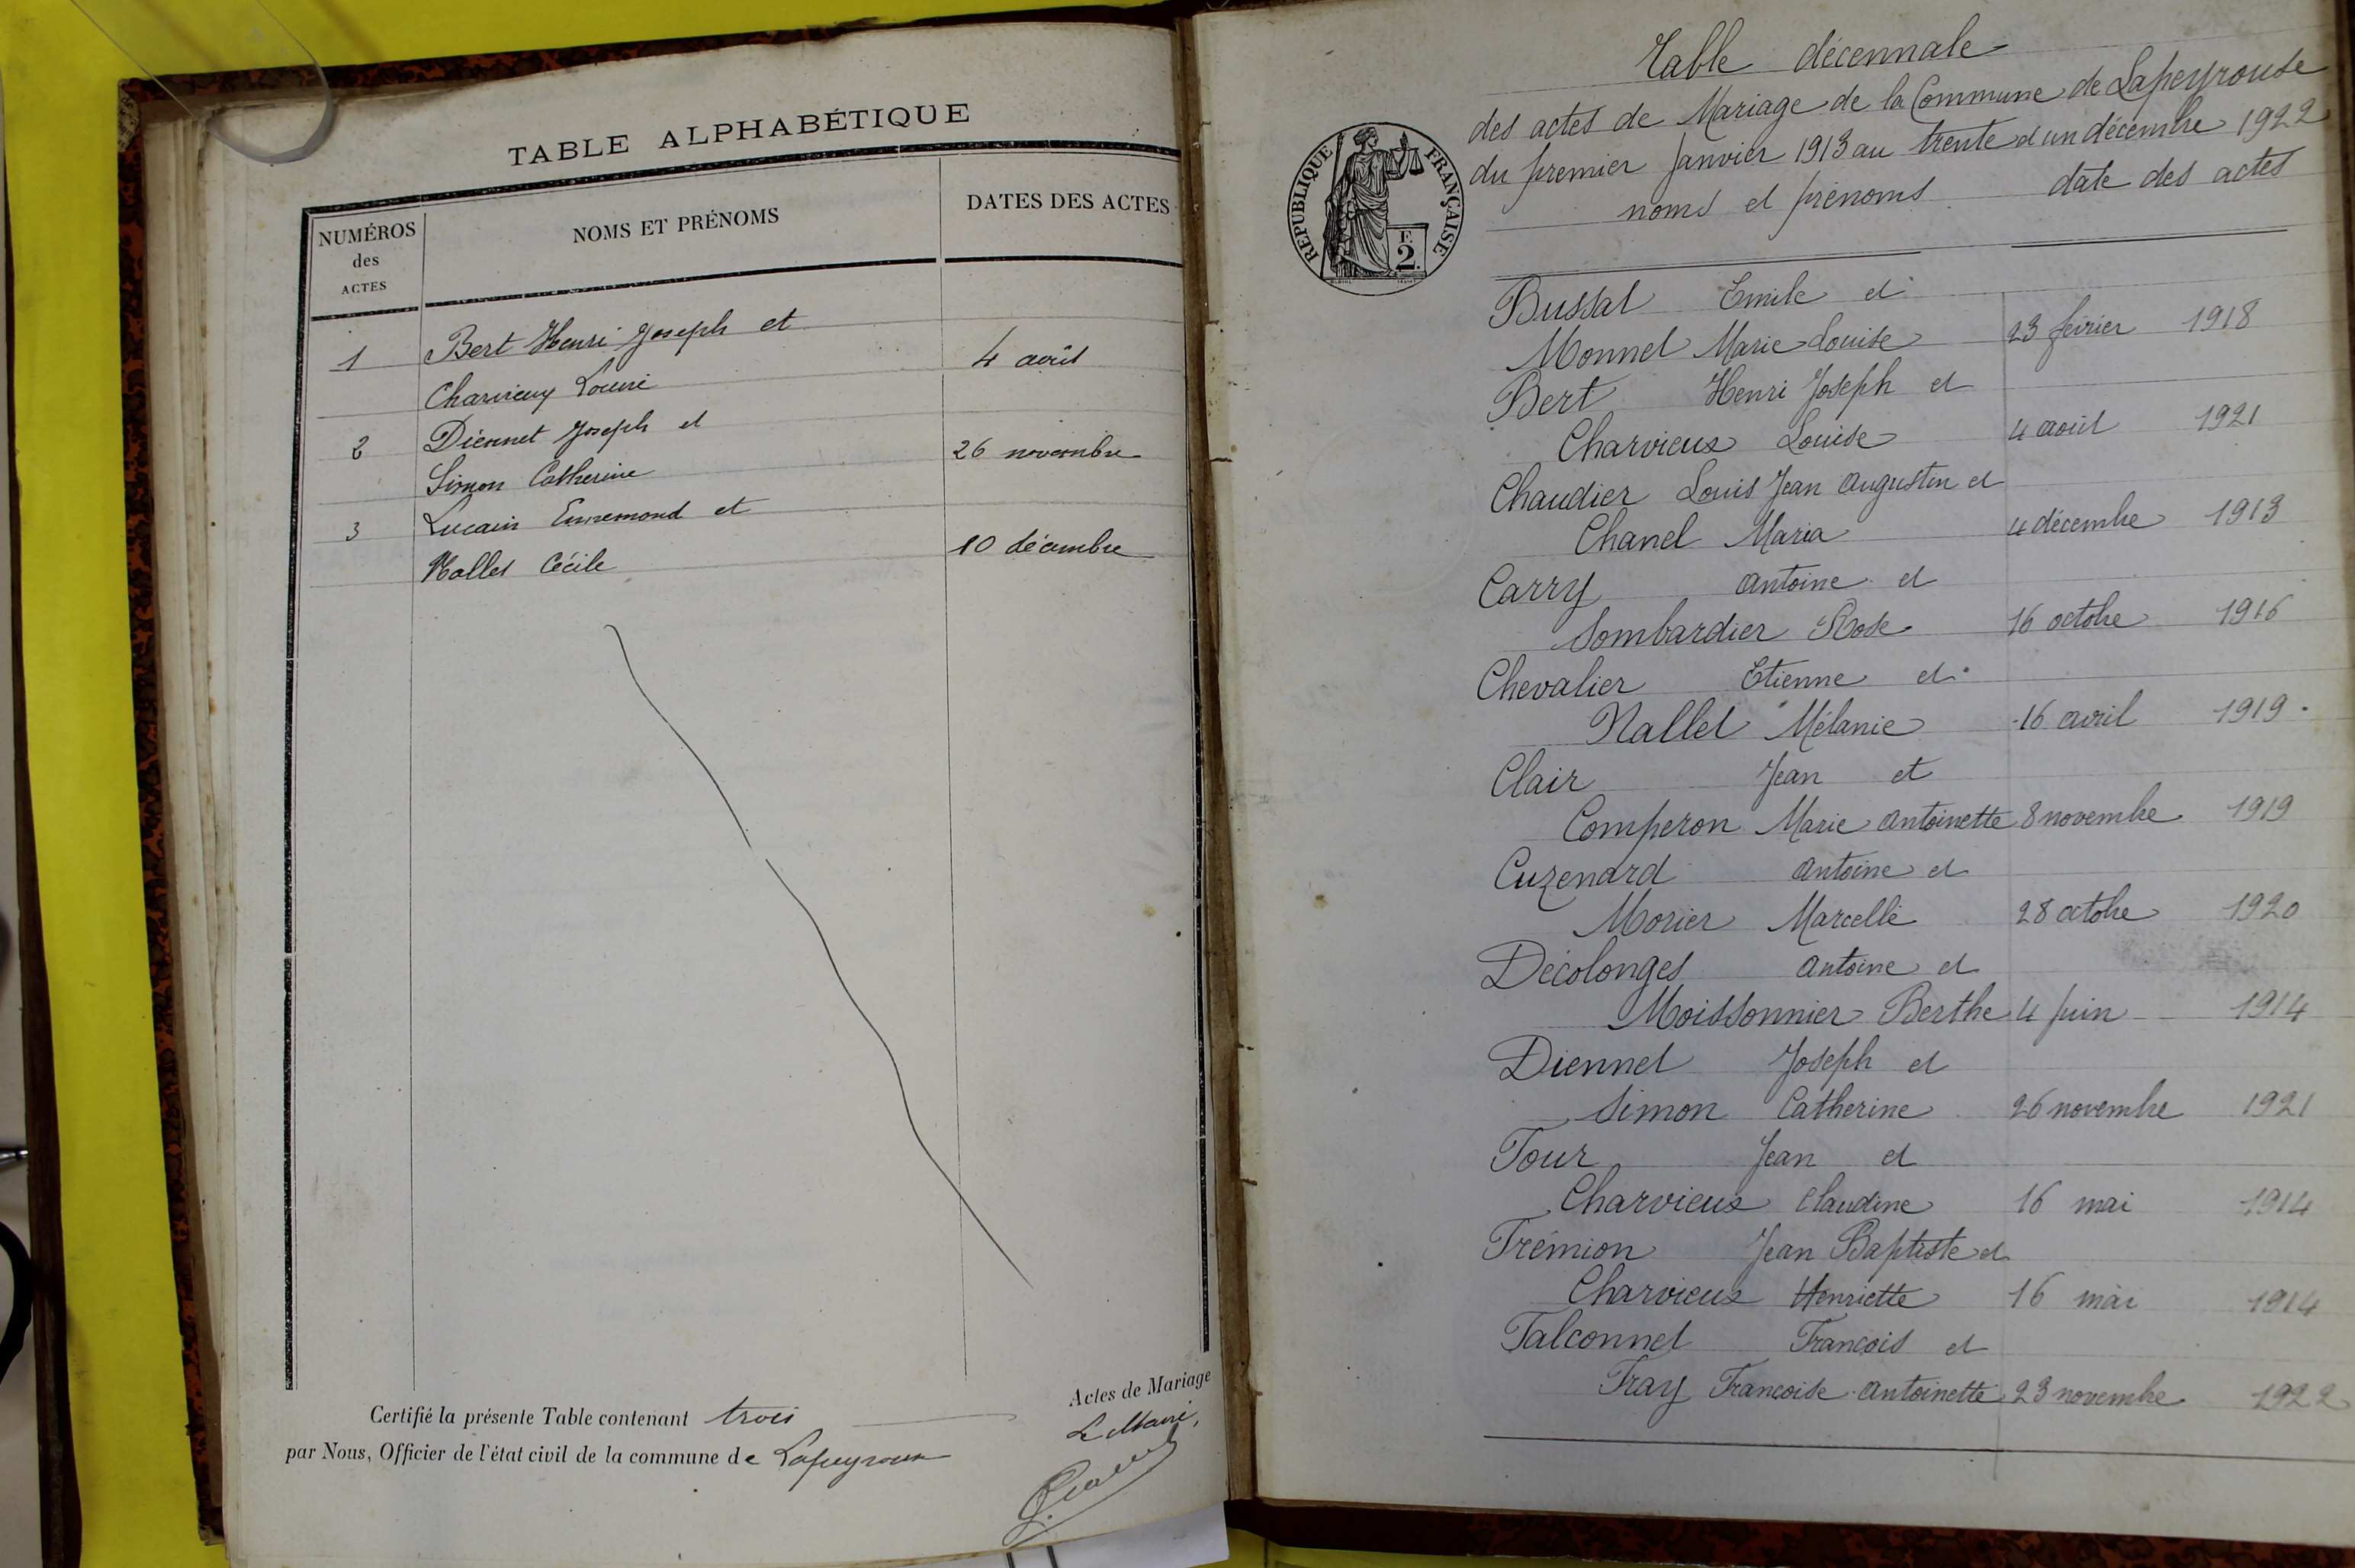 TABLE ALPHABÉTIQUE
NUMÉROS des ACTES
NOMS ET PRÉNOMS
DATES DES ACTES
1 Bert Henri Joseph et
Charvieux Louise 4 août
2 Diennet Joseph et
Simon Catherine 26 novembre
3 Lucain Ennemond et
Nallet Cécile 10 décembre
Certifié la présente Table contenant trois Actes de Mariage
par Nous, Officier de l'état civil de la commune de Lapeyrouse
Le Maire,
Table décennale
des actes de Mariage de la Commune de Lapeyrouse
du premier Janvier 1913 au trente et un décembre 1922
noms et prénoms date des actes
RÉPUBLIQUE FRANÇAISE
F.
2.
Bussat Emile et
Monnet Marie Louise 23 février 1918
Bert Henri Joseph et
Charvieux Louise 4 août 1921
Chaudier Louis Jean Augustin et
Chanel Maria 4 décembre 1913
Carry Antoine et
Lombardier Rose 16 octobre 1916
Chevalier Etienne et
Nallet Mélanie 16 avril 1919
Clair Jean et
Comperon Marie Antoinette 8 novembre 1919
Cuzenard Antoine et
Morier Marcelle 28 octobre 1920
Décolonges Antoine et
Moissonnier Berthe 4 juin 1914
Diennet Joseph et
Simon Catherine 26 novembre 1921
Four Jean et
Charvieux Claudine 16 mai 1914
Frémion Jean Baptiste et
Charvieux Henriette 16 mai 1914
Falconnet François et
Fray Françoise Antoinette 23 novembre 1922